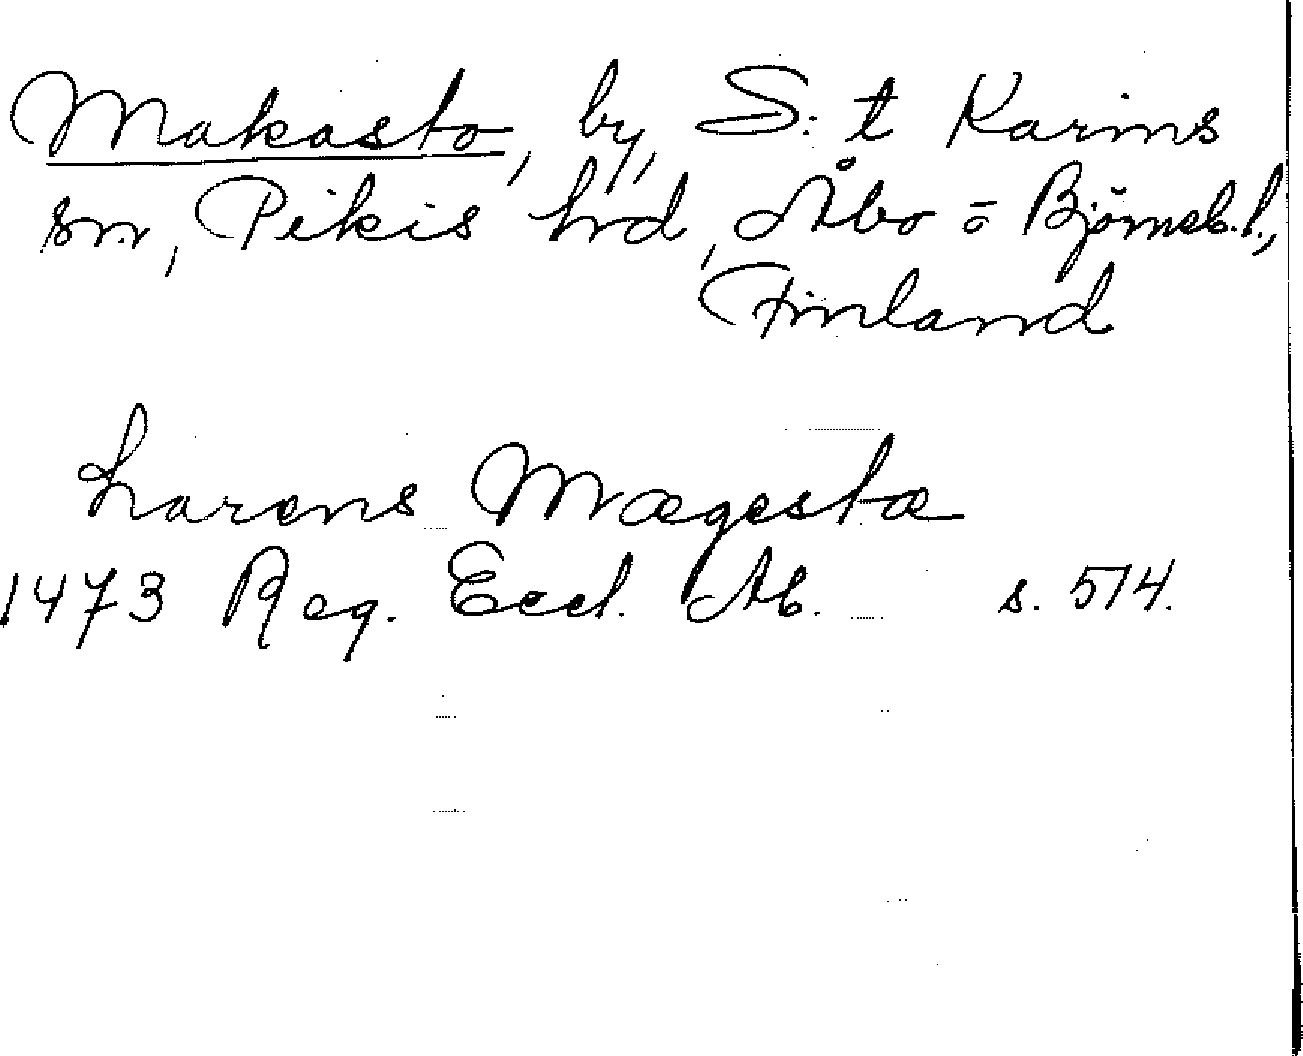 Makasto, by, S:t Karins
sn, Pikis hrd, Åbo o Björneb. l.,
Finland
Larens Mægestæ
1473 Reg. Eccl. Ab. s. 514.